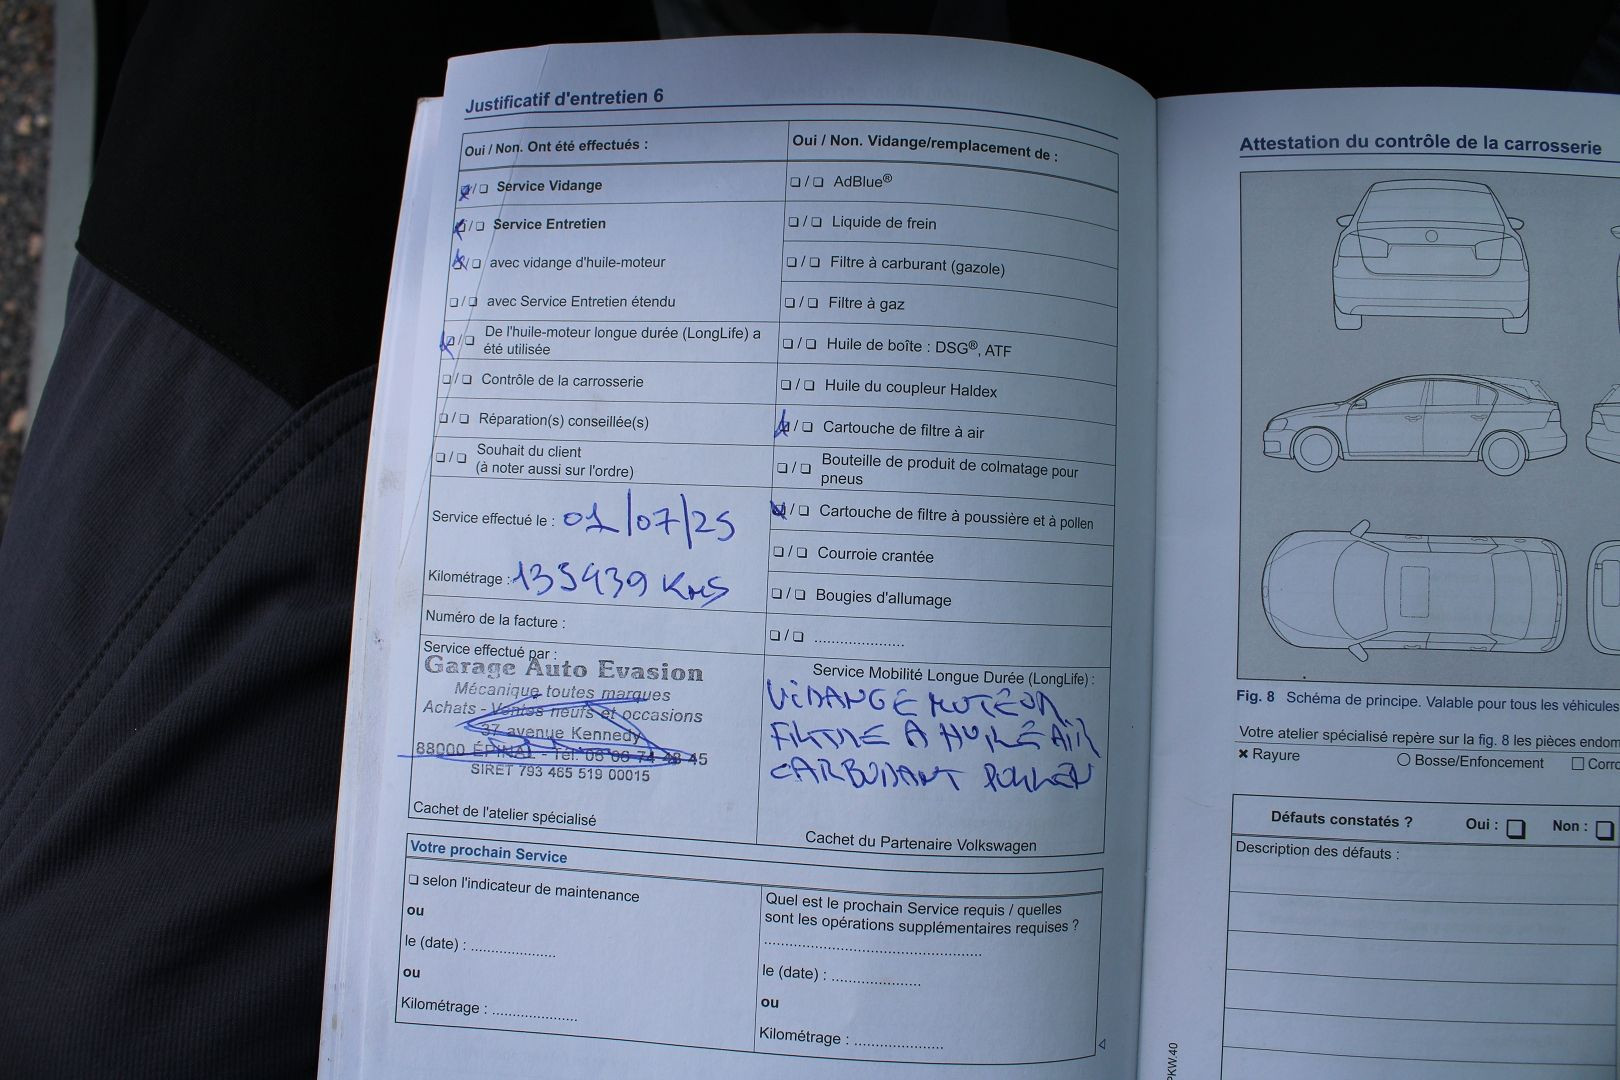 Justificatif d'entretien 6
Oui / Non. Ont été effectués :
❏/❏ Service Vidange
❏/❏ Service Entretien
❏/❏ avec vidange d'huile-moteur
❏/❏ avec Service Entretien étendu
❏/❏ De l'huile-moteur longue durée (LongLife) a
été utilisée
❏/❏ Contrôle de la carrosserie
❏/❏ Réparation(s) conseillée(s)
❏/❏ Souhait du client
(à noter aussi sur l'ordre)
Service effectué le : 01/07/25
Kilométrage : 135939 KMS
Numéro de la facture :
Service effectué par :
Garage Auto Evasion
Mécanique toutes marques
Achats - Ventes neufs et occasions
37 avenue Kennedy
88000 ÉPINAL - Tél. 45
SIRET 793 465 519 00015
Cachet de l'atelier spécialisé
Oui / Non. Vidange/remplacement de :
❏/❏ AdBlue®
❏/❏ Liquide de frein
❏/❏ Filtre à carburant (gazole)
❏/❏ Filtre à gaz
❏/❏ Huile de boîte : DSG®, ATF
❏/❏ Huile du coupleur Haldex
❏/❏ Cartouche de filtre à air
❏/❏ Bouteille de produit de colmatage pour
pneus
❏/❏ Cartouche de filtre à poussière et à pollen
❏/❏ Courroie crantée
❏/❏ Bougies d'allumage
❏/❏ ....................
Service Mobilité Longue Durée (LongLife) :
VIDANGE MOTEUR
FILTRE A HUILE AIR
CARBURANT POLLEN
Cachet du Partenaire Volkswagen
Votre prochain Service
❏ selon l'indicateur de maintenance
ou
le (date) : ...................
ou
Kilométrage : ...................
Quel est le prochain Service requis / quelles
sont les opérations supplémentaires requises ?
................................................
le (date) : ....................
ou
Kilométrage : ....................
Attestation du contrôle de la carrosserie
Fig. 8 Schéma de principe. Valable pour tous les véhicules
Votre atelier spécialisé repère sur la fig. 8 les pièces endom
✖ Rayure ○ Bosse/Enfoncement ☐ Corro
Défauts constatés ? Oui : ❏ Non : ❏
Description des défauts :
PKW.40